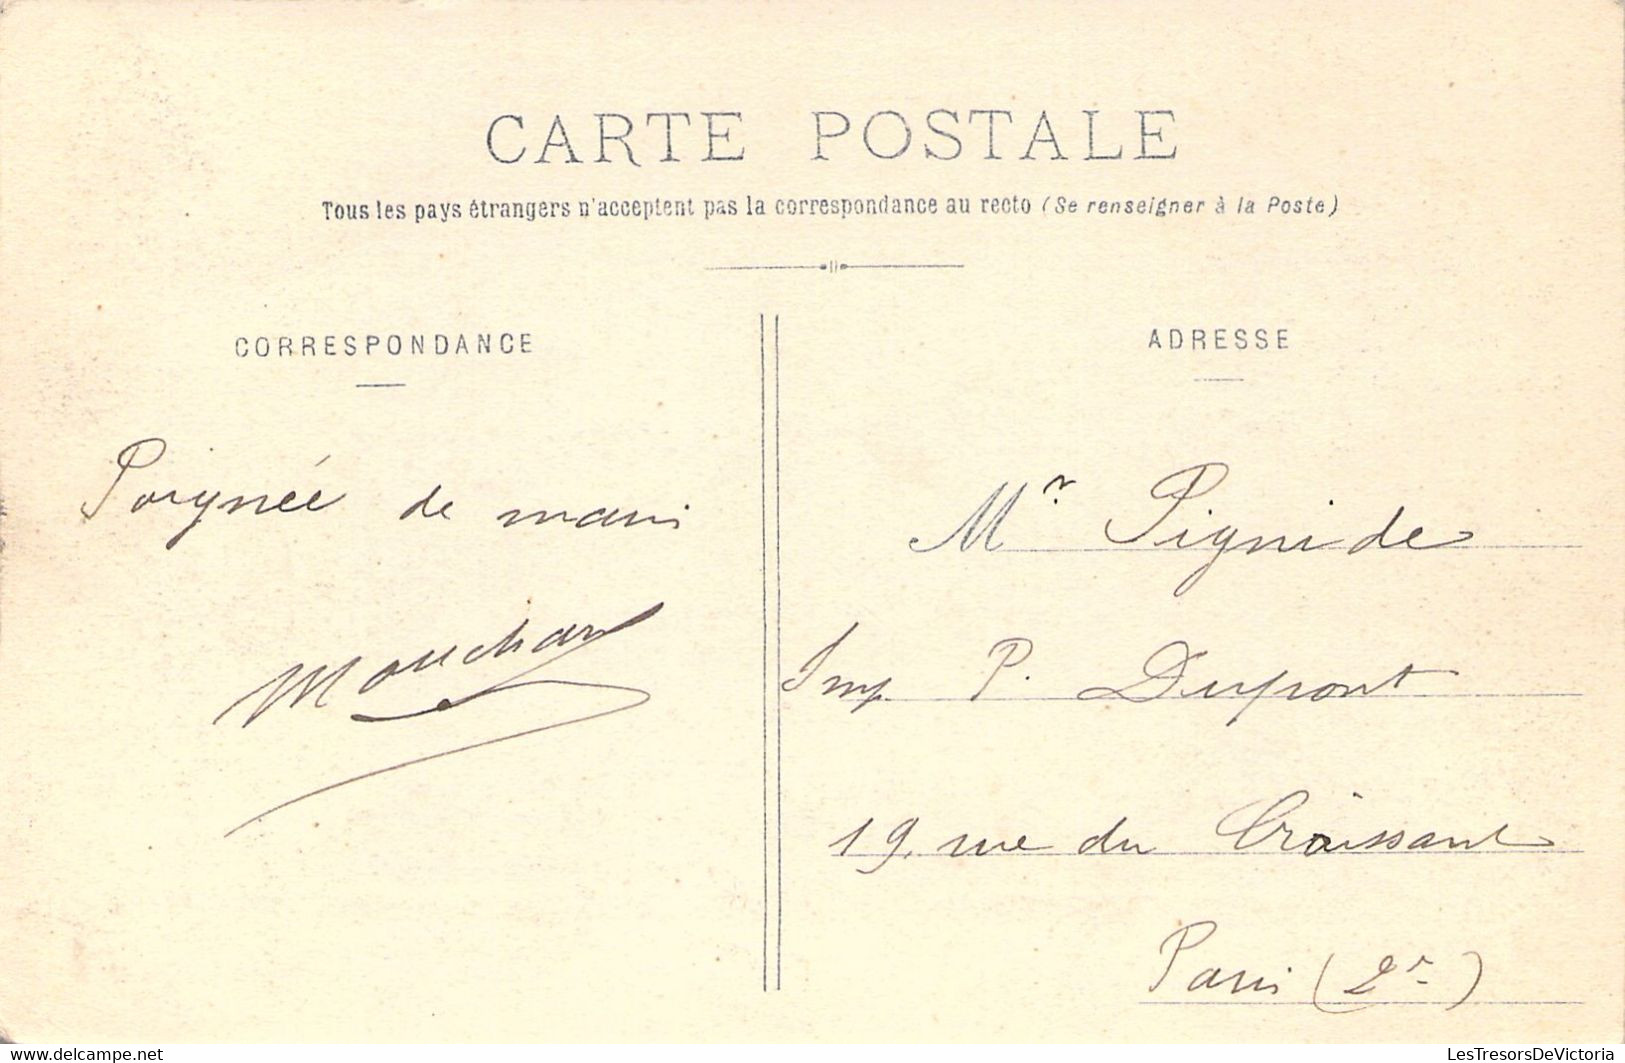 CARTE POSTALE
Tous les pays étrangers n'acceptent pas la correspondance au recto (Se renseigner à la Poste)
CORRESPONDANCE
Poignée de main
ADRESSE
Mr. Pignide
Imp P. Dupont
19, rue du Croissant
Paris (2e)
www.delcampe.net
LesTresorsDeVictoria